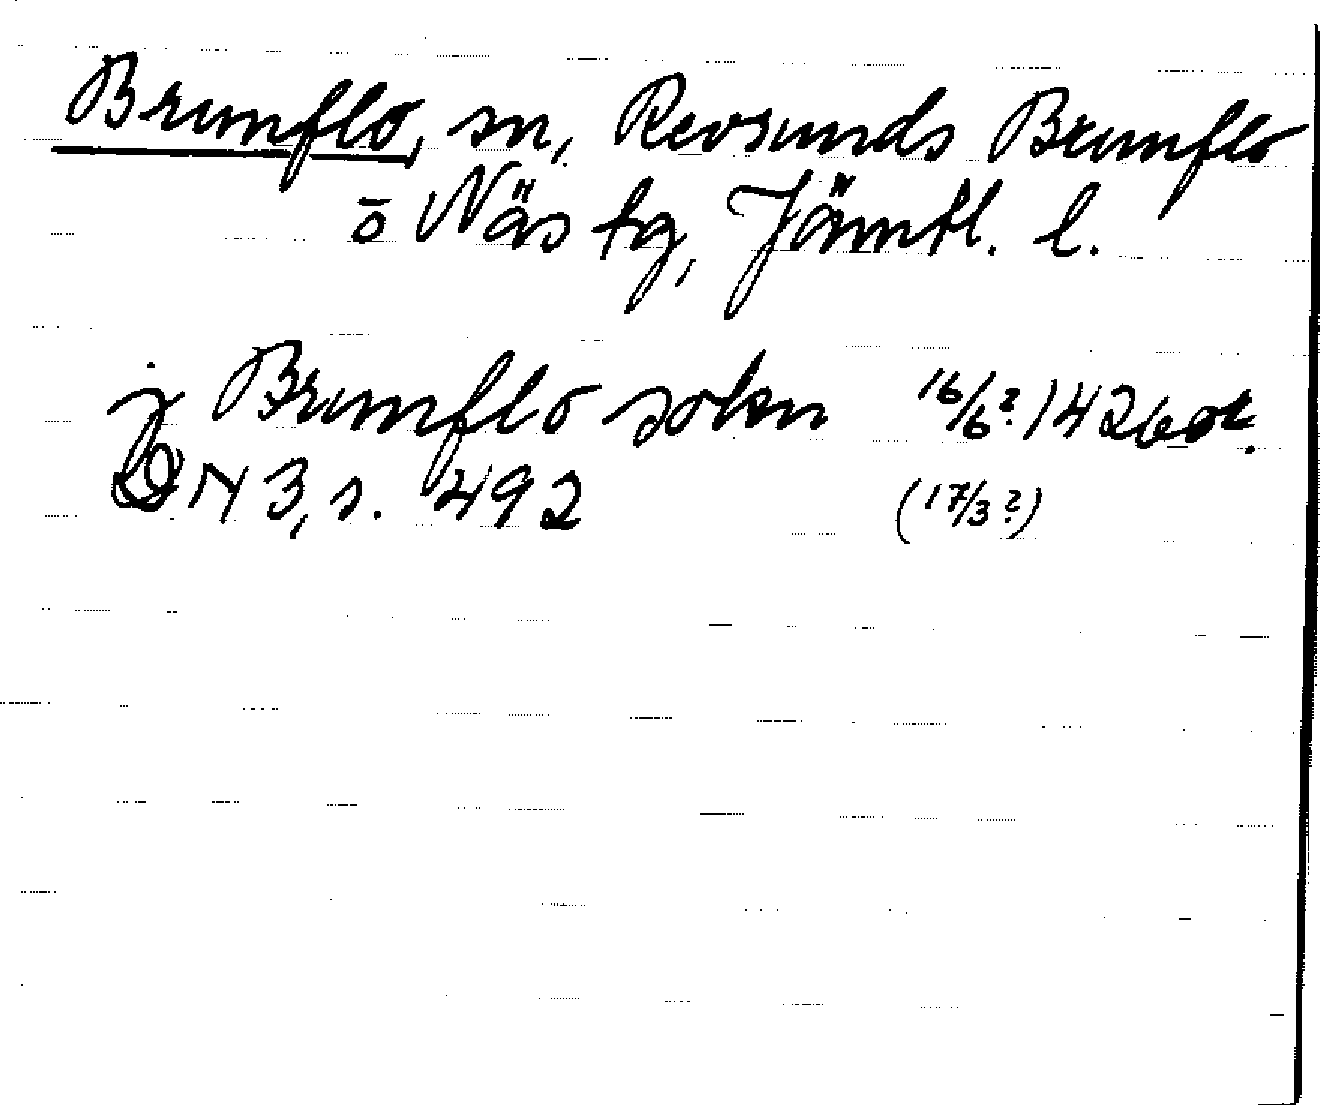 Brunflo, sn, Revsunds Brunflo
ō Näs tg, Jämtl. l.
j Brunflo sokn 16/6? 1426 or.
DN 3, s. 492 (17/3?)